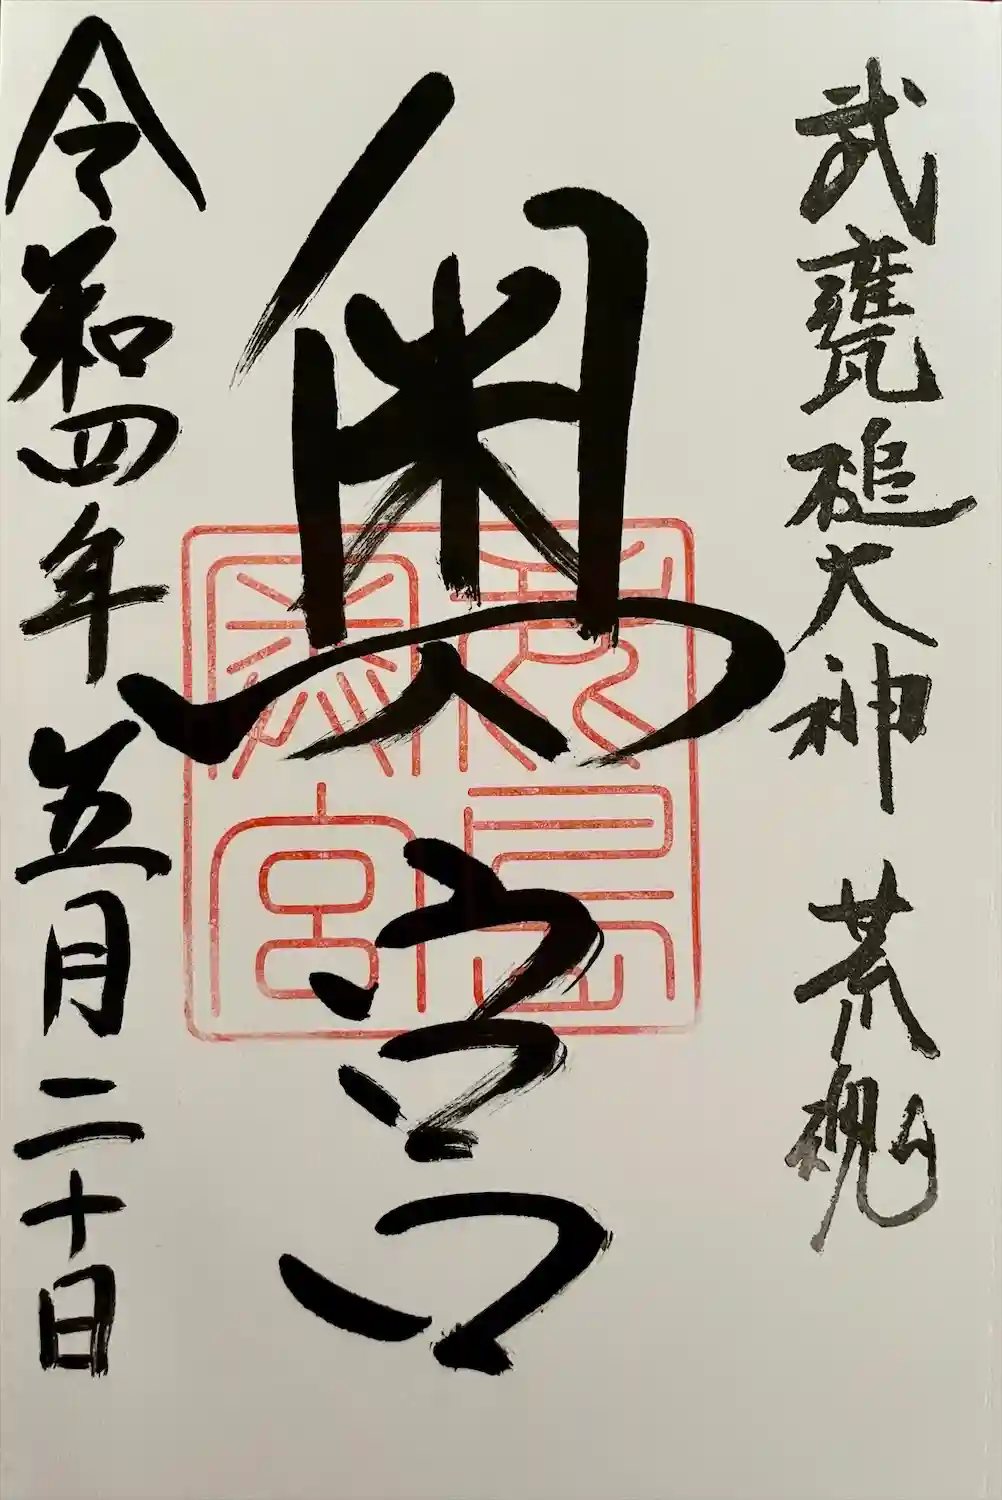 武甕槌大神 荒魂
奥宮
鹿島
奥宮
令和四年 五月二十日